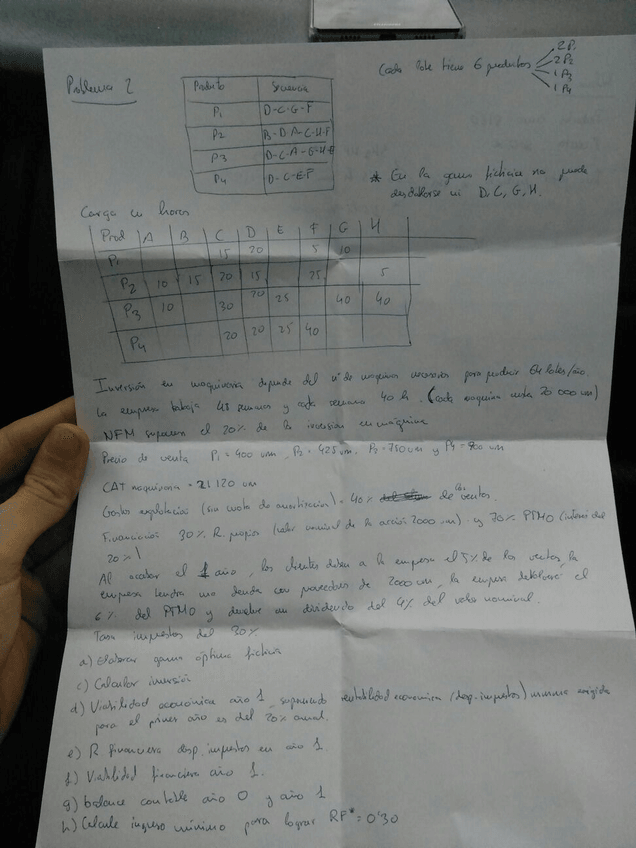 Problema 2
Cada lote tiene 6 productos
2 P1
2 P2
1 P3
1 P4
Producto Secuencia
P1 D-C-G-F
P2 B-D-A-C-H-F
P3 D-C-A-G-H-E
P4 D-C-E-F
* En la gama ficticia no puede
desdoblarse ni D, C, G, H.
Carga en horas
Prod A B C D E F G H
P1 15 20 5 10
P2 10 15 20 15 25 5
P3 10 30 20 25 40 40
P4 20 20 25 40
Inversión en maquinaria depende del nº de maquinas necesarias para producir lotes/año.
La empresa trabaja 48 semanas y cada semana 40 h. (cada maquina cuesta 20 000 um)
NFM suponen el 20% de la inversion en máquina
Precio de venta P1 = 400 um, P2 = 425 um, P3 = 750 um y P4 = 800 um
CAT maquinaria = 21120 um
Gastos explotación (sin cuota de amortización) = 40% de las ventas.
Financiación 30% R. propios (valor nominal de la acción 2000 um) y 70% PTMO (interes del
20%)
Al acabar el 1 año, los clientes deben a la empresa el 5% de las ventas, la
empresa tendra una deuda con proveedores de 2000 um, la empresa el
6% del PTMO y devuelve un dividendo del 4% del valor nominal.
Tasa impuestos del 20%
a) Elaborar gama óptima ficticia
c) Calcular inversión
d) Viabilidad economica año 1, suponiendo rentabilidad economica (desp. impuestos) minima exigida
para el primer año es del 20% anual.
e) R financiera desp. impuestos en año 1.
f) Viabilidad financiera año 1.
g) balance contable año 0 y año 1
h) Calcule ingreso mínimo para lograr RF* = 0'30